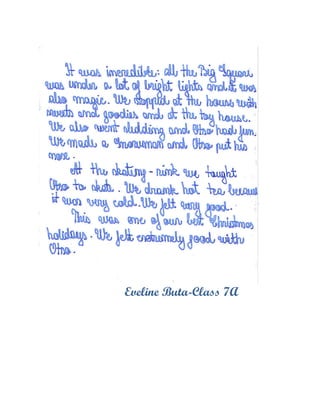 It was incredible: all the Big Square
was under a lot of bright lights and it was
also magic. We stopped at the house with
sweets and goodies and at the toy house.
We also went sledding and Otso had fun.
We made a snowman and Otso put his
nose.
At the skating-rink we taught
Otso to skate. We drank hot tea because
it was very cold. We felt very good.
This was one of our best Christmas
holidays. We felt extremely good with
Otso.
Eveline Buta-Class 7A